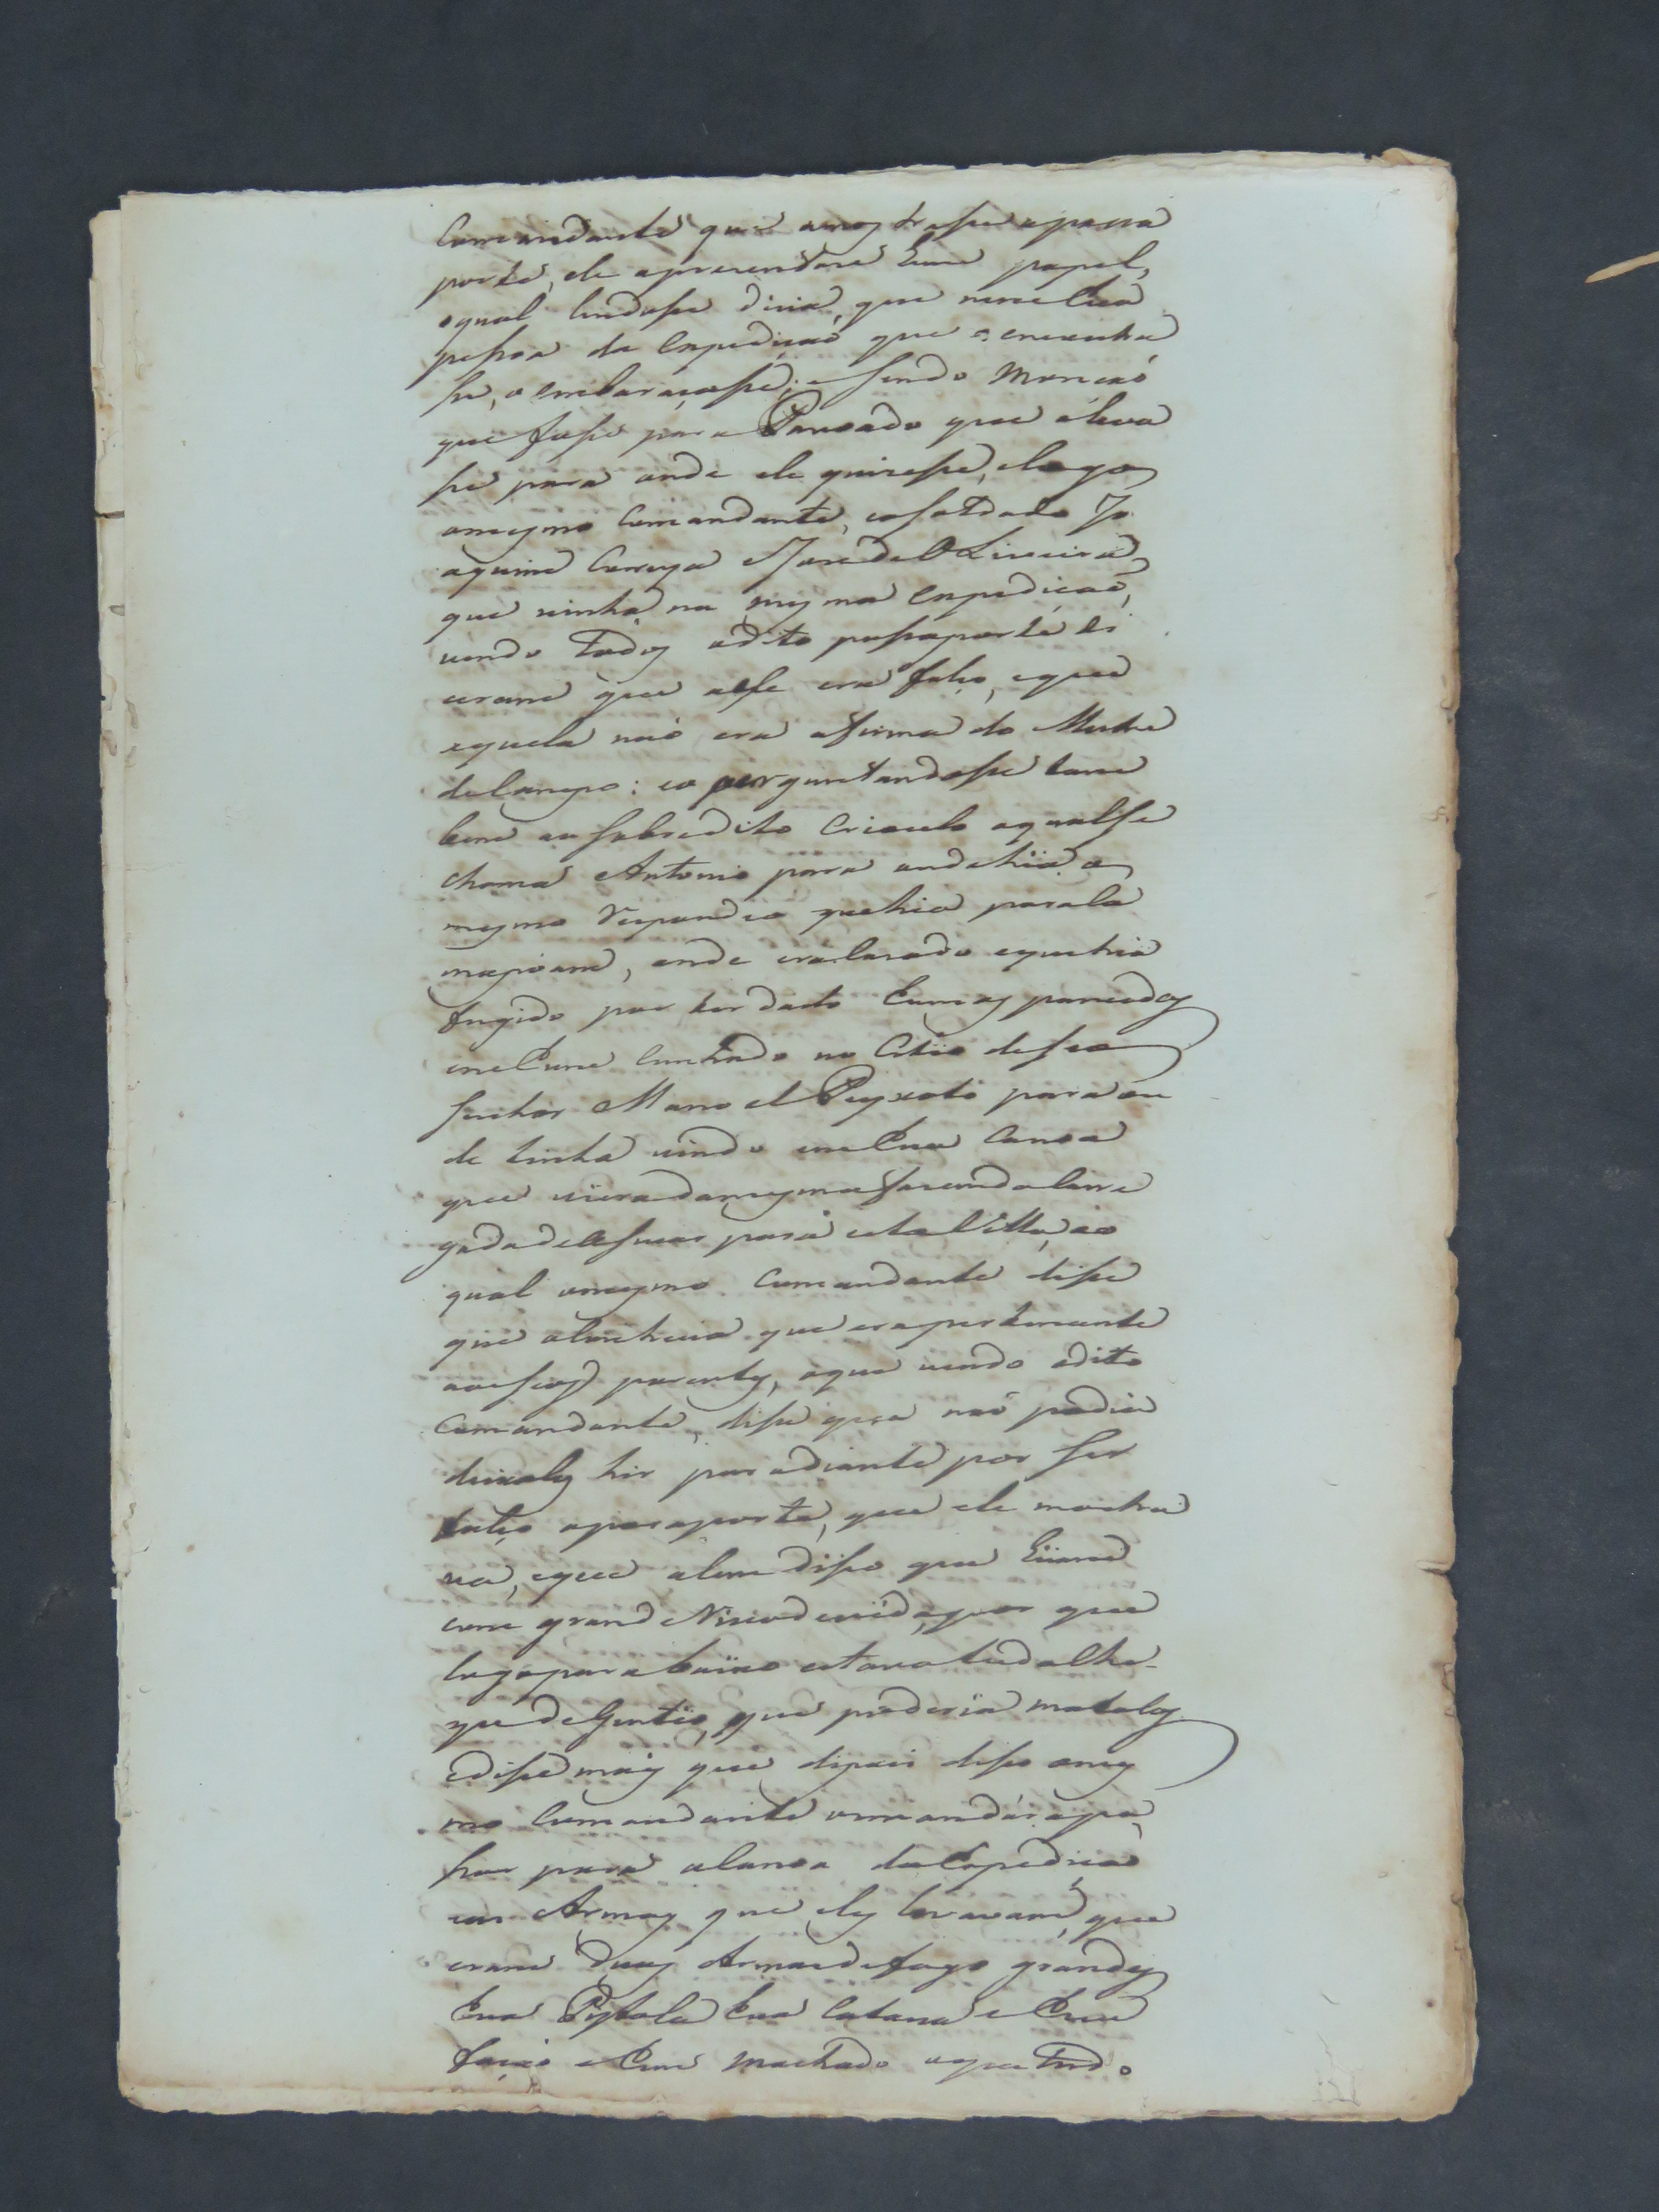 Comandante que amostrase apassa
porte, ele aprezentara hum papel,
oqual lendose dizia, que nenhua
pessoa da Expedicaó que o encontra
se, o embaraçasse; esendo Moncaó
que fose para Povoado que oleva
se para onde ele quizese, elogo
omesmo Comandante, eosoldado Jo
aquim Correya eJoze de OLiveira,
que vinha na mesma Expedicaó,
vendo todos odito passaporte di
ceram que alfe era falço, eque
equela naó era afirma do Mestre
deCampo: eo perguntandose tam
bem ao sobredito Crioulo oqual se
chama Antonio para ondehia o
mesmo respondeo quehia para la
onde era lavado equehia
fugido por ter dado humas pancadas
emhum Cunhado no Citio deseo
senhor Manoel Peyxoto para on
de tinha vindo emhua Canoa
que viera damesma fazenda Carre
gada deAsucar para esta Villa, ao
qual omesmo Comandante dise
que que era pertencente
aoseos parentes, oque vendo odito
Comandante, dise que naó podia
deixalos hir por adiante por ser
falço opasaporte, que ele mostra
va, eque alem diso que hiam
com grande Risco devida, por que
logo para baixo estava tudo alha-
gado deGentio, que poderia matalos
edise mais que dipois diso omes
mo Comandante omandára pa
sar para aCanoa daExpedicaó
eas Armas que eles levavam, que
eram duas Armas defogo grandes
hua Pystola hua Catana e hum
facaó e hum Machado oque tudo